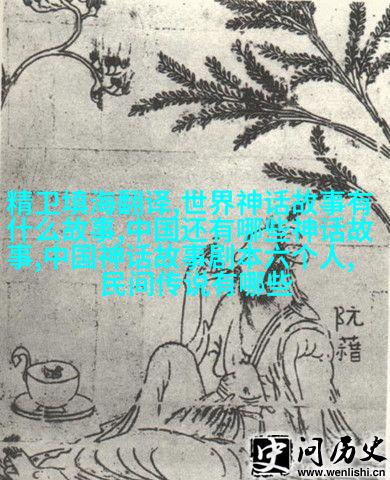 精卫填海翻译,世界神话故事有
什么故事,中国还有哪些神话故
事,中国神话故事剧本六个人,
民间传说有哪些
阮籍
史问历史
www.wenlishi.cn